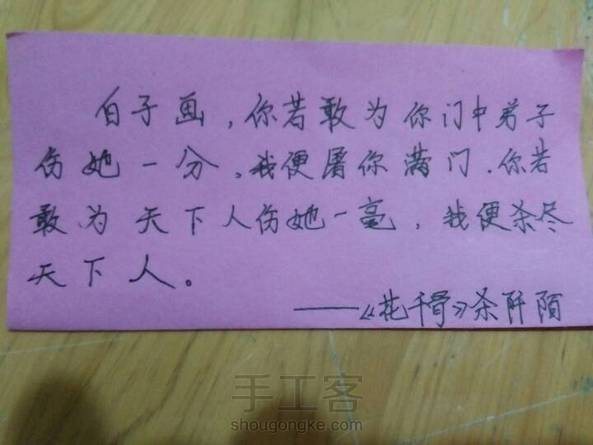 白子画,你若敢为你门中弟子
伤她一分,我便屠你满门.你若
敢为天下人伤她一毫,我便杀尽
天下人。
——《花千骨》杀阡陌
手工客
shougongke.com